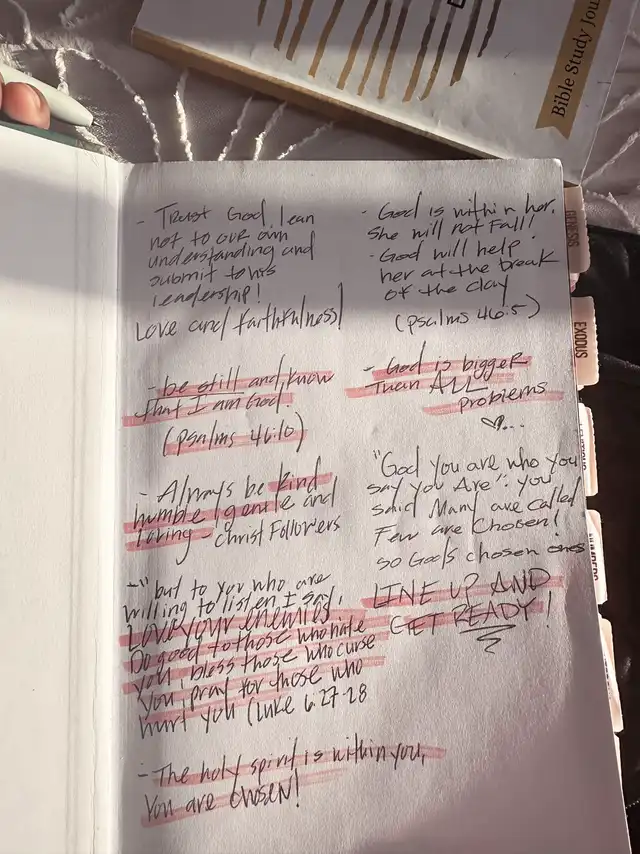 Bible Study Jou
- Trust God, lean
not to our own
understanding and
submit to his
leadership!
Love and faithfulness!
- be still and know
that I am God.
(Psalms 46:10)
- Always be kind
humble, gentle and
loving - Christ Followers
- "but to you who are
willing to listen I say,
Love your enemies!
Do good to those who hate
you, bless those who curse
you, pray for those who
hurt you (Luke 6:27-28
- The holy spirit is within you,
You are chosen!
- God is within her,
She will not Fall!
- God will help
her at the break
of the day
(Psalms 46:5)
- God is bigger
Than ALL
problems
"God you are who you
say you Are". you
said Many are called
Few are Chosen!
so God's chosen ones
LINE UP AND
GET READY!
GENESIS
EXODUS
NUMBERS